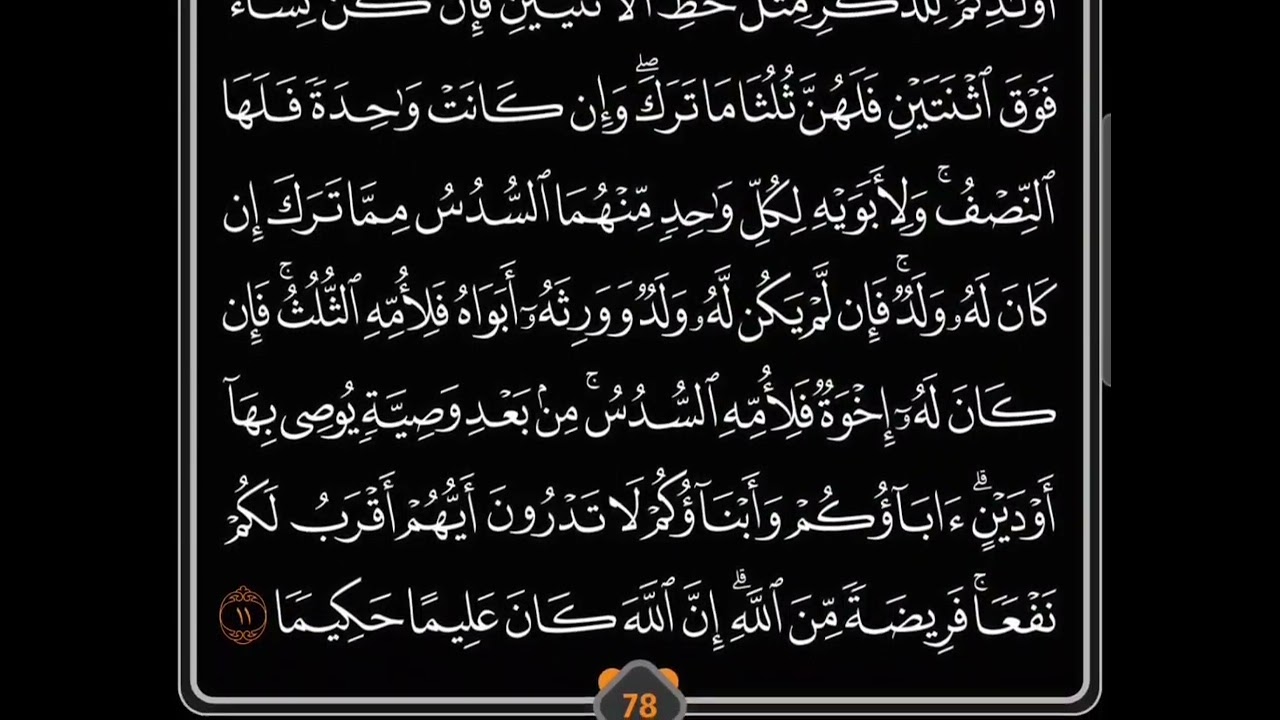 أَوْلَٰدِكُمْ لِلذَّكَرِ مِثْلُ حَظِّ ٱلْأُنثَيَيْنِ فَإِن كُنَّ نِسَآءً
فَوْقَ ٱثْنَتَيْنِ فَلَهُنَّ ثُلُثَا مَا تَرَكَ ۖ وَإِن كَانَتْ وَٰحِدَةً فَلَهَا
ٱلنِّصْفُ ۚ وَلِأَبَوَيْهِ لِكُلِّ وَٰحِدٍ مِّنْهُمَا ٱلسُّدُسُ مِمَّا تَرَكَ إِن
كَانَ لَهُۥ وَلَدٌ ۚ فَإِن لَّمْ يَكُن لَّهُۥ وَلَدٌ وَوَرِثَهُۥٓ أَبَوَاهُ فَلِأُمِّهِ ٱلثُّلُثُ ۚ فَإِن
كَانَ لَهُۥٓ إِخْوَةٌ فَلِأُمِّهِ ٱلسُّدُسُ ۚ مِنۢ بَعْدِ وَصِيَّةٍ يُوصِى بِهَآ
أَوْ دَيْنٍ ۗ ءَابَآؤُكُمْ وَأَبْنَآؤُكُمْ لَا تَدْرُونَ أَيُّهُمْ أَقْرَبُ لَكُمْ
نَفْعًا ۚ فَرِيضَةً مِّنَ ٱللَّهِ ۗ إِنَّ ٱللَّهَ كَانَ عَلِيمًا حَكِيمًا ١١
78